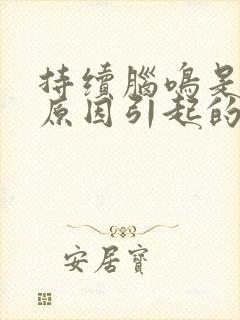 持续腦鳴是
原因引起的
安居寶